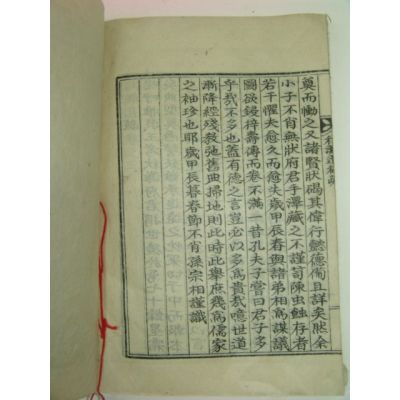 奠而慟之又諸賢狀碣其偉行懿德備且詳矣然余
小子不肖無狀府君手澤藏之不謹荀陳虫蝕存者
若干懼夫愈久而愈失歲甲辰春與諸弟相爲謀議
圖欲鋟梓壽傳而卷不滿一昔孔夫子嘗曰君子多
乎哉不多也蓋有德之言豈必以多爲貴哉噫世道
漸降經殘敎弛舊典掃地則此時此擧庶幾爲儒家
之袖珍也耶歲甲辰暮春節不肖孫宗相謹識